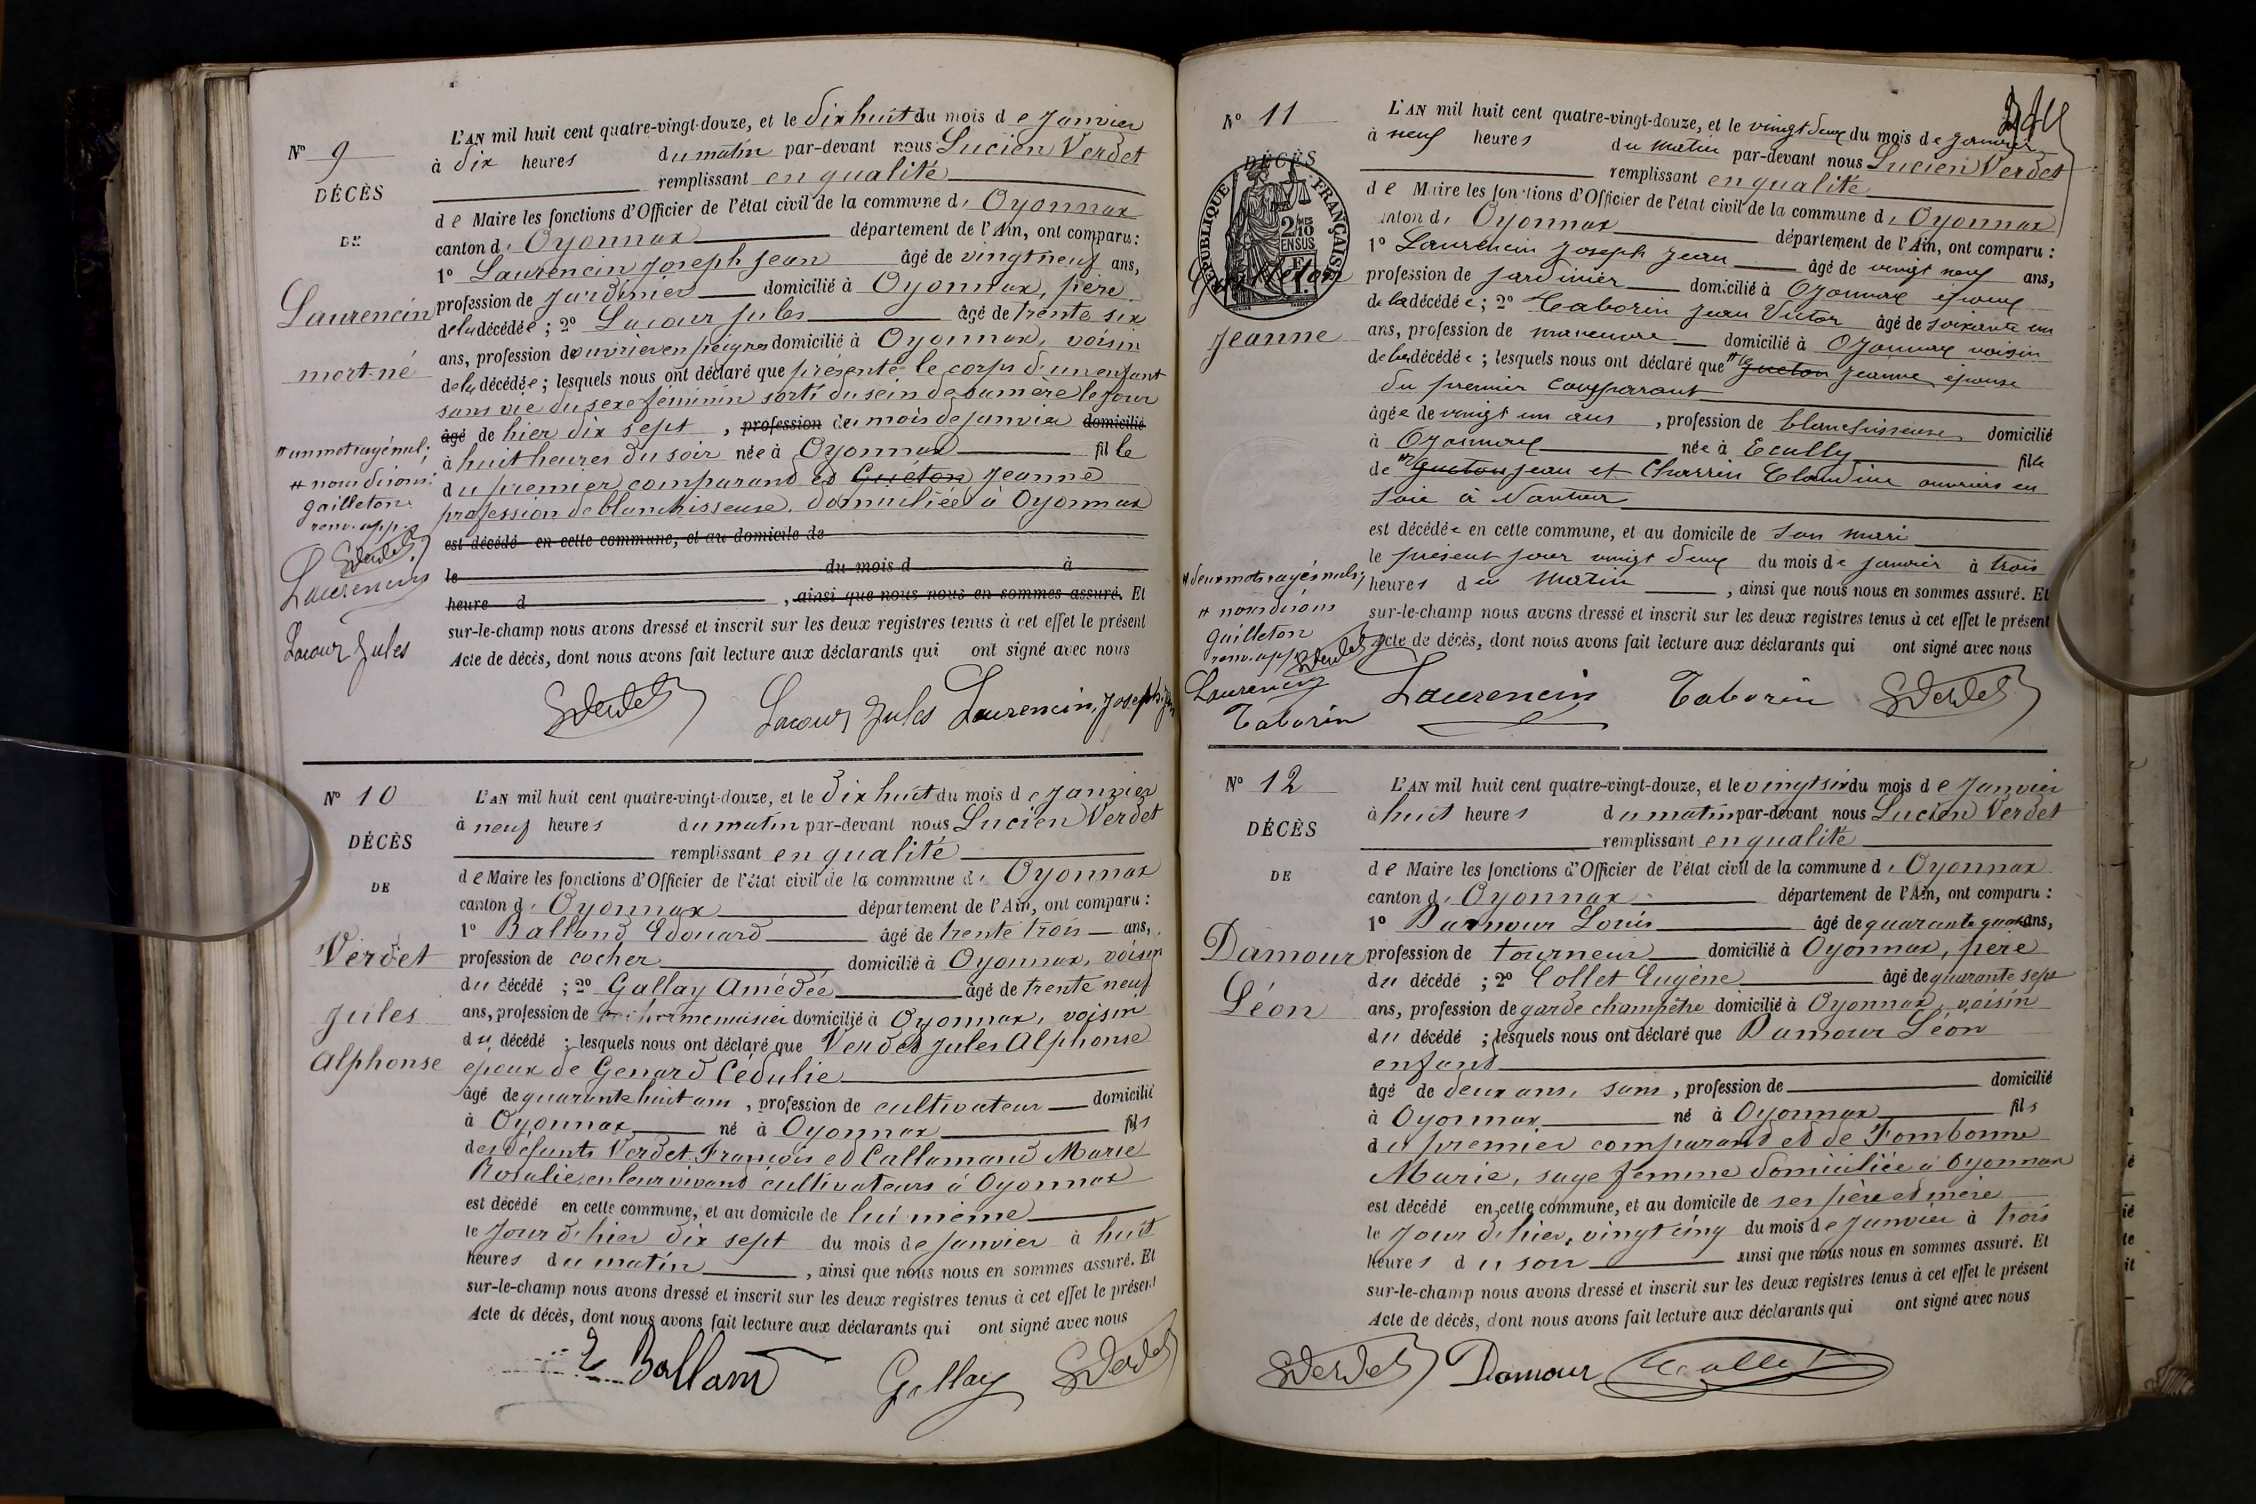 N° 9
DÉCÈS
DE
Laurencin
mort-né
# un mot rayé nul;
# nous disons
gailleton
renv. app.
SVerdet
Laurencin
Lacour Jules
L'AN mil huit cent quatre-vingt-douze, et le dix huit du mois de Janvier
à dix heures du matin par-devant nous Lucien Verdet
remplissant en qualité
de Maire les fonctions d'Officier de l'état civil de la commune d' Oyonnax
canton d' Oyonnax département de l'Ain, ont comparu :
1° Laurencin Joseph Jean âgé de vingt neuf ans,
profession de Jardinier domicilié à Oyonnax, père
de la décédée ; 2° Lacour Jules âgé de trente six
ans, profession d'ouvrier en peignes domicilié à Oyonnax, voisin
de la décédée ; lesquels nous ont déclaré que présenté le corps d'un enfant
sans vie du sexe féminin sorti du sein de sa mère le jour
âgé de hier dix sept , profession du mois de janvier domicilié
à huit heures du soir née à Oyonnax fille
du premier comparant et Guéton Jeanne
profession de blanchisseuse, domiciliée à Oyonnax
est décédé en cette commune, et au domicile de
le du mois d à
heure d , ainsi que nous nous en sommes assuré. Et
sur-le-champ nous avons dressé et inscrit sur les deux registres tenus à cet effet le présent
Acte de décès, dont nous avons fait lecture aux déclarants qui ont signé avec nous
SVerdet Lacour Jules Laurencin, Joseph Jean
N° 10
DÉCÈS
DE
Verdet
Jules
Alphonse
L'AN mil huit cent quatre-vingt-douze, et le dix huit du mois de Janvier
à neuf heures du matin par-devant nous Lucien Verdet
remplissant en qualité
de Maire les fonctions d'Officier de l'état civil de la commune d' Oyonnax
canton d' Oyonnax département de l'Ain, ont comparu :
1° Balland Edouard âgé de trente trois ans,
profession de cocher domicilié à Oyonnax, voisin
du décédé ; 2° Gallay Amédée âgé de trente neuf
ans, profession de menuisier domicilié à Oyonnax, voisin
du décédé ; lesquels nous ont déclaré que Verdet Jules Alphonse
époux de Genard Cédulie
âgé de quarante huit ans , profession de cultivateur domicilié
à Oyonnax né à Oyonnax fils
des défunts Verdet François et Callamand Marie
Rosalie, en leur vivant cultivateurs à Oyonnax
est décédé en cette commune, et au domicile de lui même
le jour d'hier dix sept du mois de janvier à huit
heures du matin , ainsi que nous nous en sommes assuré. Et
sur-le-champ nous avons dressé et inscrit sur les deux registres tenus à cet effet le présent
Acte de décès, dont nous avons fait lecture aux déclarants qui ont signé avec nous
E Balland Gallay SVerdet
N° 11
DÉCÈS
RÉPUBLIQUE FRANÇAISE
2/10 EN SUS
Jeanne
# deux mots rayés nuls;
# nous disons
gailleton
renv. app.
SVerdet
Laurencin
Taborin
L'AN mil huit cent quatre-vingt-douze, et le vingt deux du mois de Janvier
à neuf heures du matin par-devant nous Lucien Verdet
remplissant en qualité
de Maire les fonctions d'Officier de l'état civil de la commune d' Oyonnax
canton d' Oyonnax département de l'Ain, ont comparu :
1° Laurencin Joseph Jean âgé de vingt neuf ans,
profession de jardinier domicilié à Oyonnax époux
de la décédée ; 2° Taborin Jean Victor âgé de soixante un
ans, profession de manœuvre domicilié à Oyonnax voisin
de la décédée ; lesquels nous ont déclaré que # Gueton Jeanne épouse
du premier comparant
âgée de vingt un ans , profession de blanchisseuse domicilié
à Oyonnax née à Ecully fille
de # Gueton Jean et Charrin Claudine ouvriers en
soie à Nantua
est décédée en cette commune, et au domicile de son mari
le présent jour vingt deux du mois de janvier à trois
heures du matin , ainsi que nous nous en sommes assuré. Et
sur-le-champ nous avons dressé et inscrit sur les deux registres tenus à cet effet le présent
Acte de décès, dont nous avons fait lecture aux déclarants qui ont signé avec nous
Laurencin Taborin SVerdet
N° 12
DÉCÈS
DE
Damour
Léon
L'AN mil huit cent quatre-vingt-douze, et le vingt six du mois de Janvier
à huit heures du matin par-devant nous Lucien Verdet
remplissant en qualité
de Maire les fonctions d'Officier de l'état civil de la commune d' Oyonnax
canton d' Oyonnax département de l'Ain, ont comparu :
1° Damour Louis âgé de quarante quatre ans,
profession de tourneur domicilié à Oyonnax, père
du décédé ; 2° Collet Eugène âgé de quarante sept
ans, profession de garde champêtre domicilié à Oyonnax, voisin
du décédé ; lesquels nous ont déclaré que Damour Léon
enfant
âgé de deux ans, sans , profession de domicilié
à Oyonnax né à Oyonnax fils
du premier comparant et de Fombonne
Marie, sage femme domiciliée à Oyonnax
est décédé en cette commune, et au domicile de ses père et mère
le jour d'hier, vingt cinq du mois de janvier à trois
heures du soir ainsi que nous nous en sommes assuré. Et
sur-le-champ nous avons dressé et inscrit sur les deux registres tenus à cet effet le présent
Acte de décès, dont nous avons fait lecture aux déclarants qui ont signé avec nous
SVerdet Damour Collet